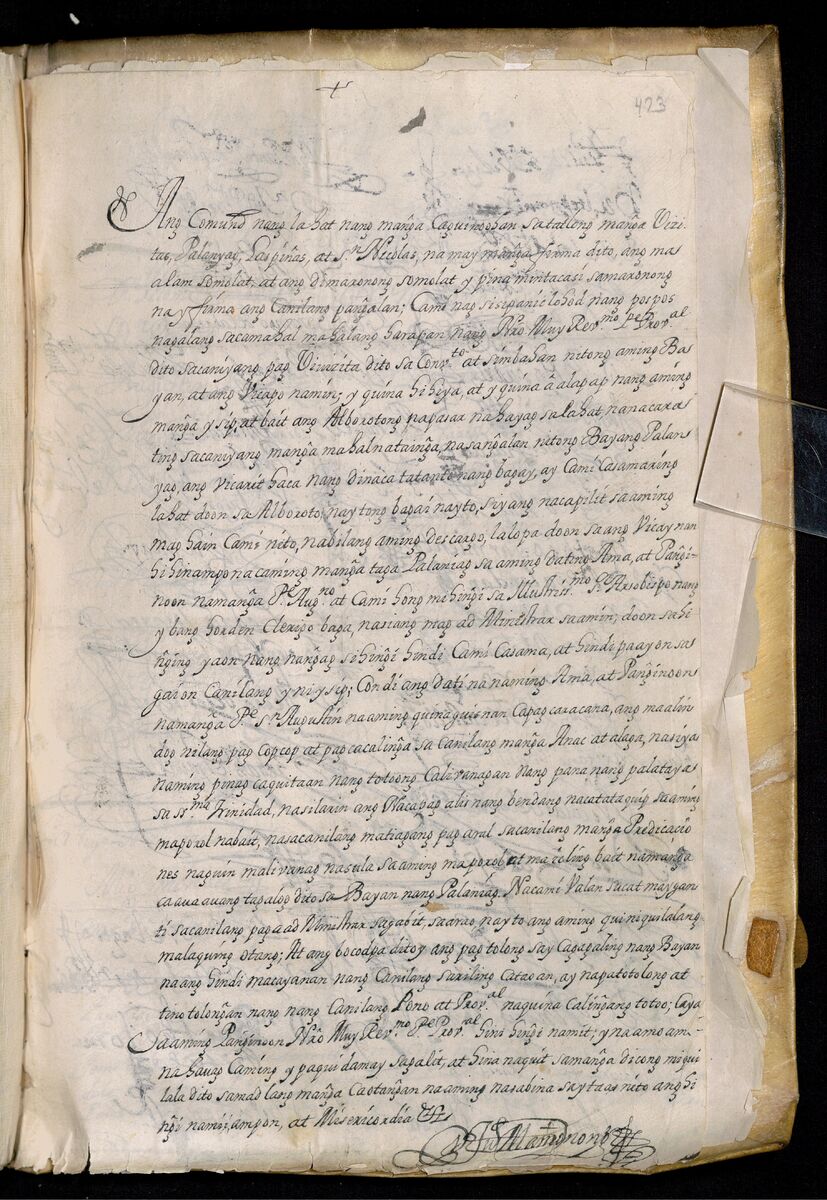 +
423
Ang Comund nang lahat nang mang̃a Caguinoohan sa tatlong mang̃a Vizi-
tas, Palanyag, Laspiñas, at Sn Nicolas, na may mang̃a firma dito, ang mas
alam somolat, at ang dimaronong somolat y pina mintacasi samaronong
na y firma ang Canilang pang̃alan; Cami nag sisipanic lohod nang pospos
nagalang sacamahal mahalang harapan nang Nro Muy Revmo Pe Proval
dito sacaniyang pag Vivizita dito sa Convto at simbahan nitong aming Ba
yan, at ang Vicario namin; y quina hihiya, at y quina alapap nang aming
mang̃a ysip, at bait ang Alborotong napasar nahayag salahat nanacara
ting sacaniyang mang̃a mahalnataing̃a, nasang̃alan nitong Bayang Palan
yag, ang Vicarit haca nang dinaca tatanto nang bagay, ay Cami Casamaring
lahat doon sa Alboroto, naytong bagai nayto, siyang nacapilit saaming
mag hain Cami nito, nabilang aming descargo, lalopa doon sa ang Vicay nan
hihinampo nacaming mang̃a taga Palaniag sa aming dating Ama, at Pang̃i-
noon namang̃a Ps Augno at Cami hong mihing̃i sa Illustrismo Sr Arsobispo nang
y bang horden Clerigo baga, nasiang mag ad Ministrar saamin; doon sahi
ng̃ing yaon nang nang̃ag sihing̃i hindi Cami Casama, at hindi paayon sa
gaion Canilang yniysip; Condi ang dati na naming Ama, at Pang̃inoon
namang̃a Ps Sn Augustin na aming quinaguisnan Capagcaracana, ang maalin
dog nilang pag Copcop at pag cacaling̃a sa Canilang mang̃a Anac at alaga, nasiya
naming pinag caquitaan nang totoong Calivanagan nang pana nang palataya
sa ssma Trinidad, nasilarin ang Nacapag alis nang bendang nacatataquip saaming
maporol nabait, nasacanilang matiagang pag aral sacanilang mang̃a Predicacio
nes naguin malivanag nasula saaming maporol at mariling bait namang̃a
caauaauang tagalog dito sa Bayan nang Palaniag. Nacami Valan sucat maygan
ti sacanilang paga ad Ministrar sagabit, saarao nayto ang aming quiniquilalang
malaquing otang; At ang bocodpa ditoy ang pag tolong say Cagagaling nang Bayan
naang hindi macayanan nang Canilang sariling Cataoan, ay nagatotolong at
tinotolong̃an nang nang Canilang Pono at Proval naquina Caling̃ang totoo; Caya
Saaming Pang̃inoon Nro Muy Revmo Pe Proval hini hing̃i namit; ynamo amo-
na hauag Caming y paquidamay sagalit, at hina naquit samang̃a dicong miqui
lala dito samadlang mang̃a Caotang̃an na aming nasabina saytaas nito ang hi
ng̃i namin, ampon, at Misericordia